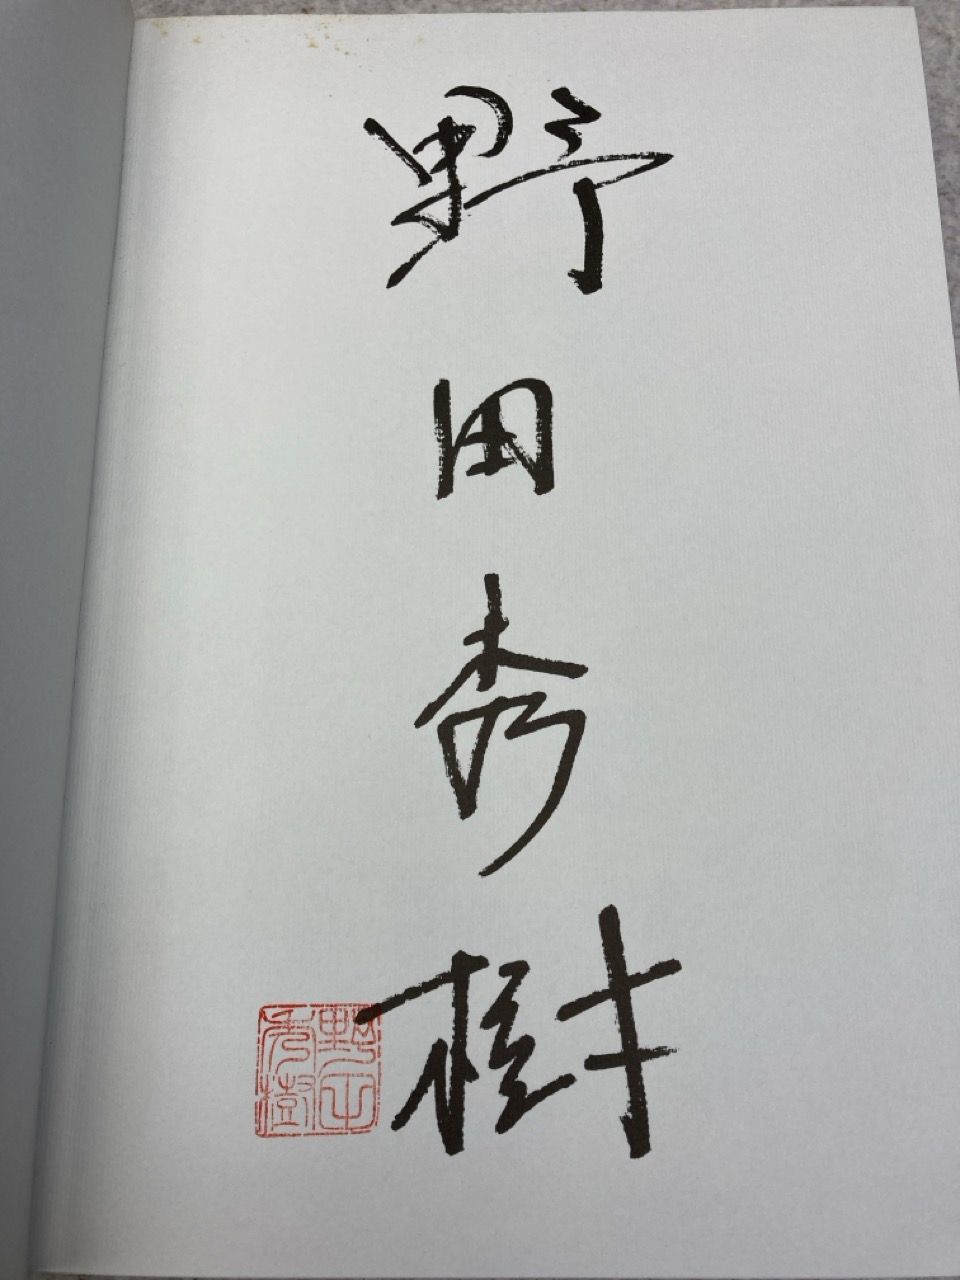 野田秀樹
野田
秀樹